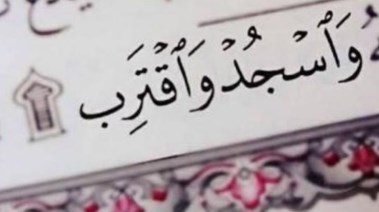 وَٱسْجُدْ وَٱقْتَرِب